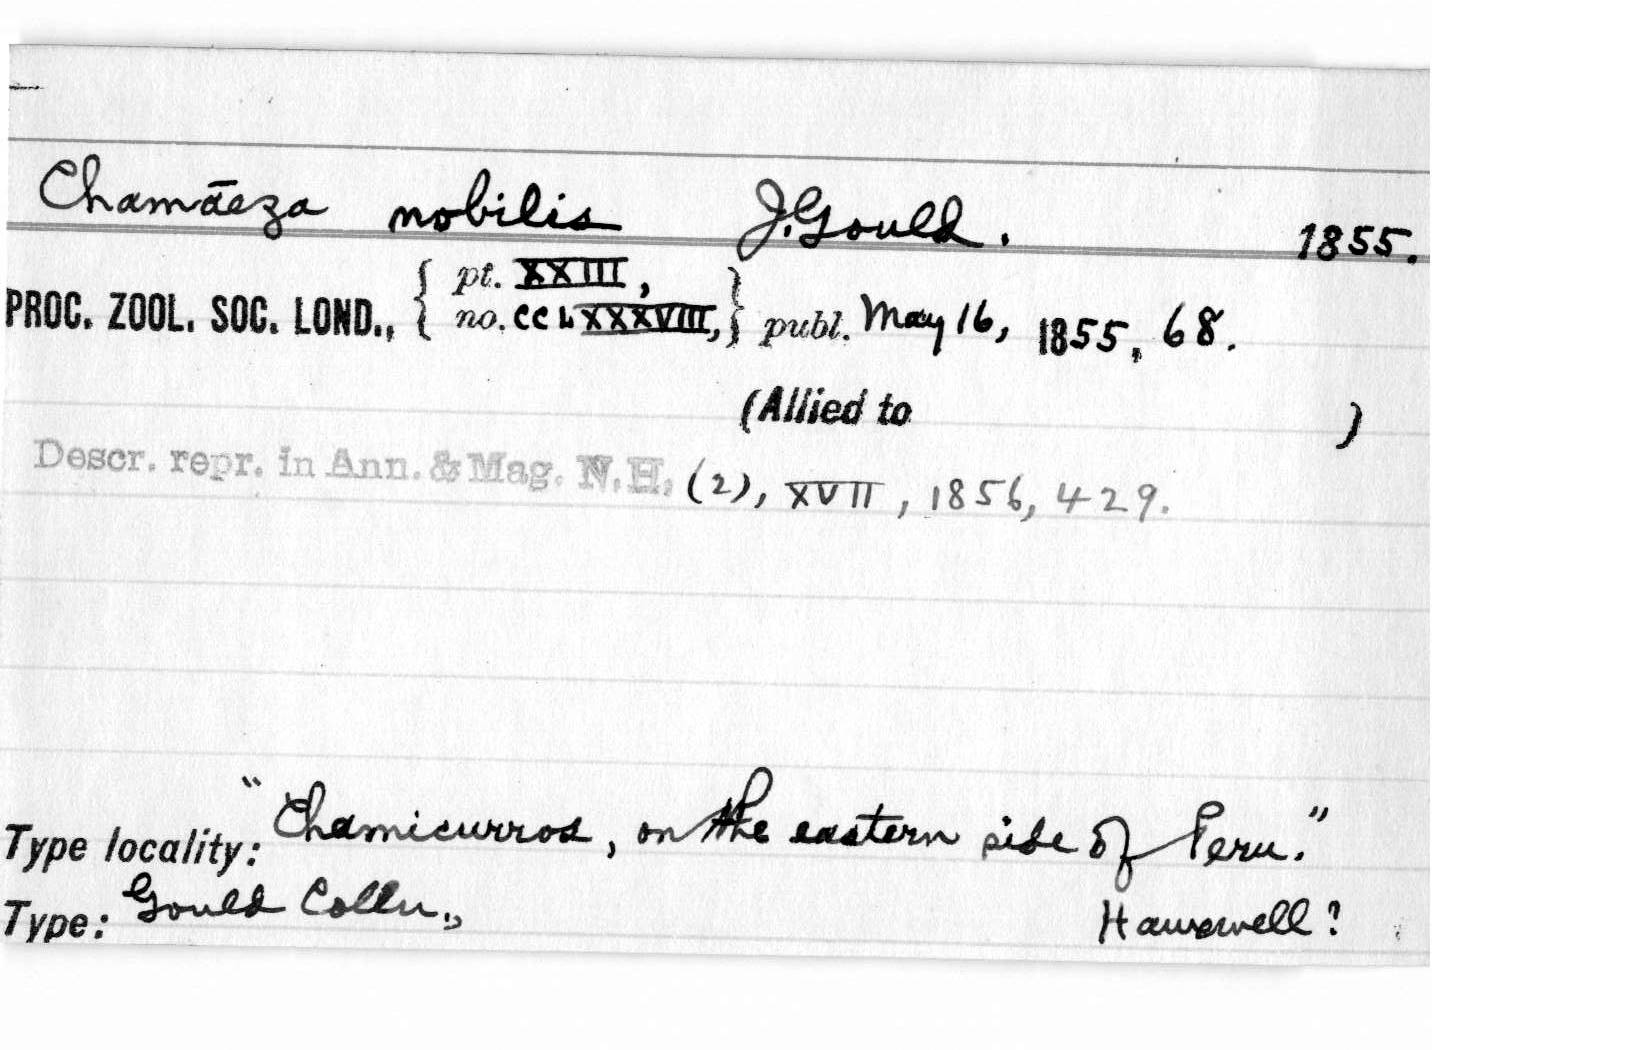 Chamāeza nobilis J. Gould. 1855.
PROC. ZOOL. SOC. LOND., { pt. XXIII, no. CCLXXXVIII, } publ. May 16, 1855, 68.
(Allied to )
Descr. repr. in Ann. & Mag. N.H. (2), XVII, 1856, 429.
Type locality: "Chamicurros, on the eastern side of Peru."
Type: Gould Colln., Hauxwell?